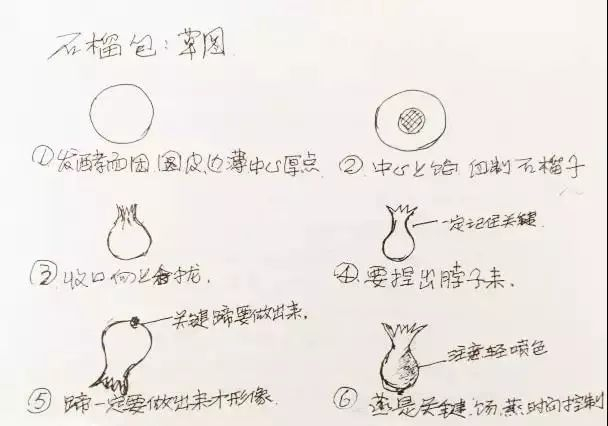 石榴包：草图
①发酵面团 圆皮，边薄中心厚点
②中心上馅 制石榴子
③收口向上拢。
一定记住关键
④要捏出脖子来。
关键蹄要做出来。
⑤蹄一定要做出来才形像.
注意轻喷色
⑥蒸是关键 蒸时间控制